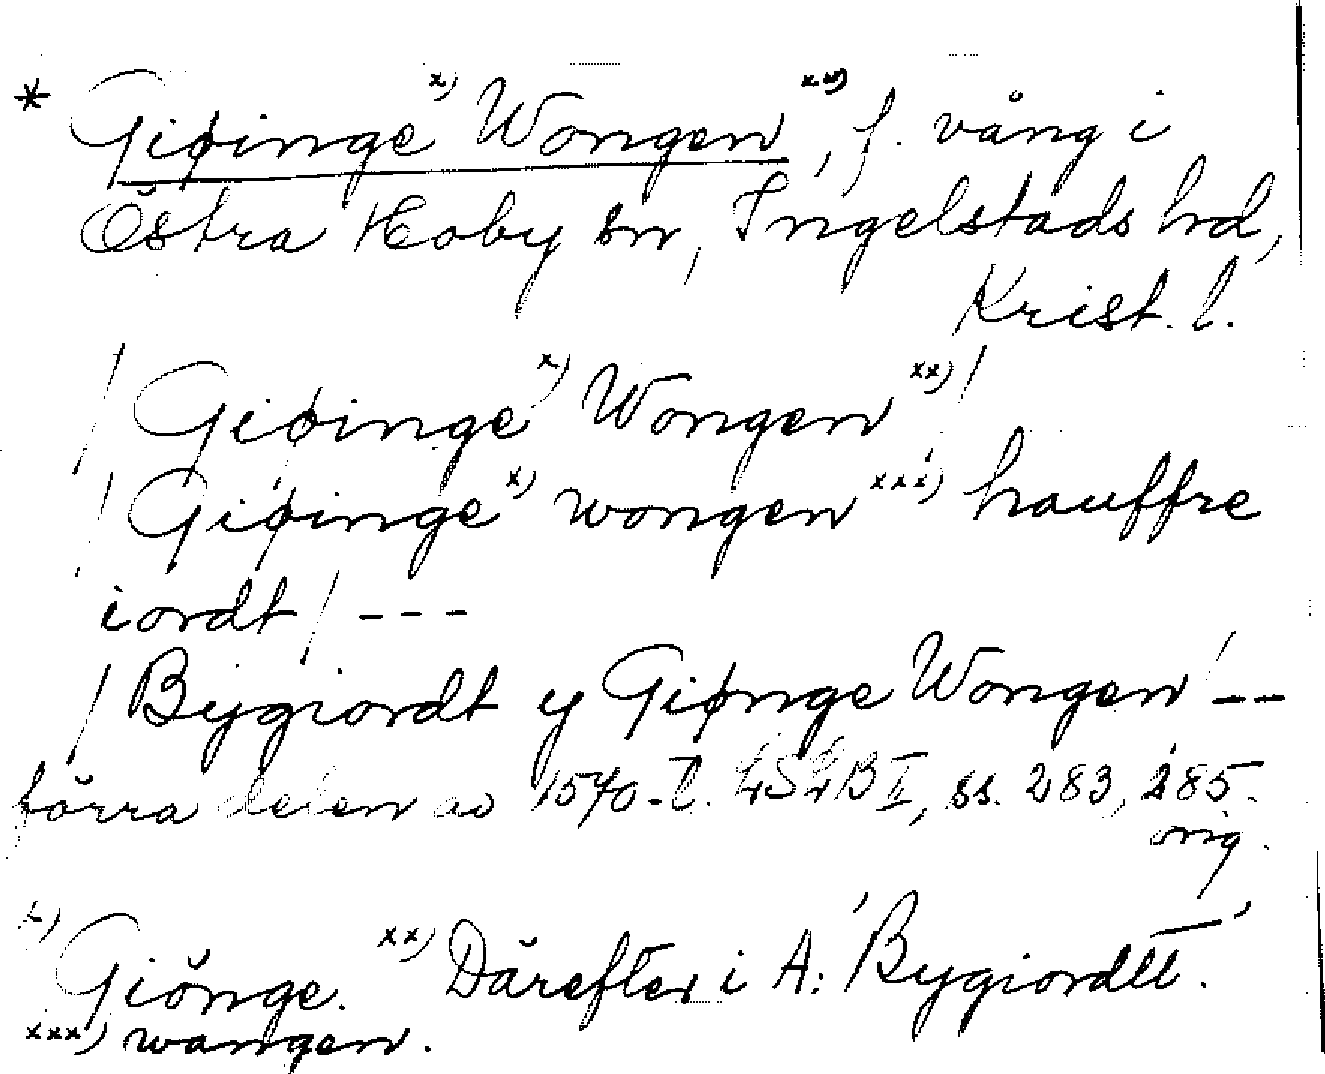 * Giøinge x) Wongen xx), f. vång i
Östra Hoby sn, Ingelstads hd,
Krist. l.
/ Giøinge x) Wongen xx) /
/ Giøinge x) wongen xxx) hauffre
iordt / - - -
/ Bygiordt y Giønge Wongen / - -
förra delen av 1570-t. LSLB II, ss. 283, 285.
orig.
x) Giönge. xx) Därefter i A: 'Bygiordtt'.
xxx) wangen.